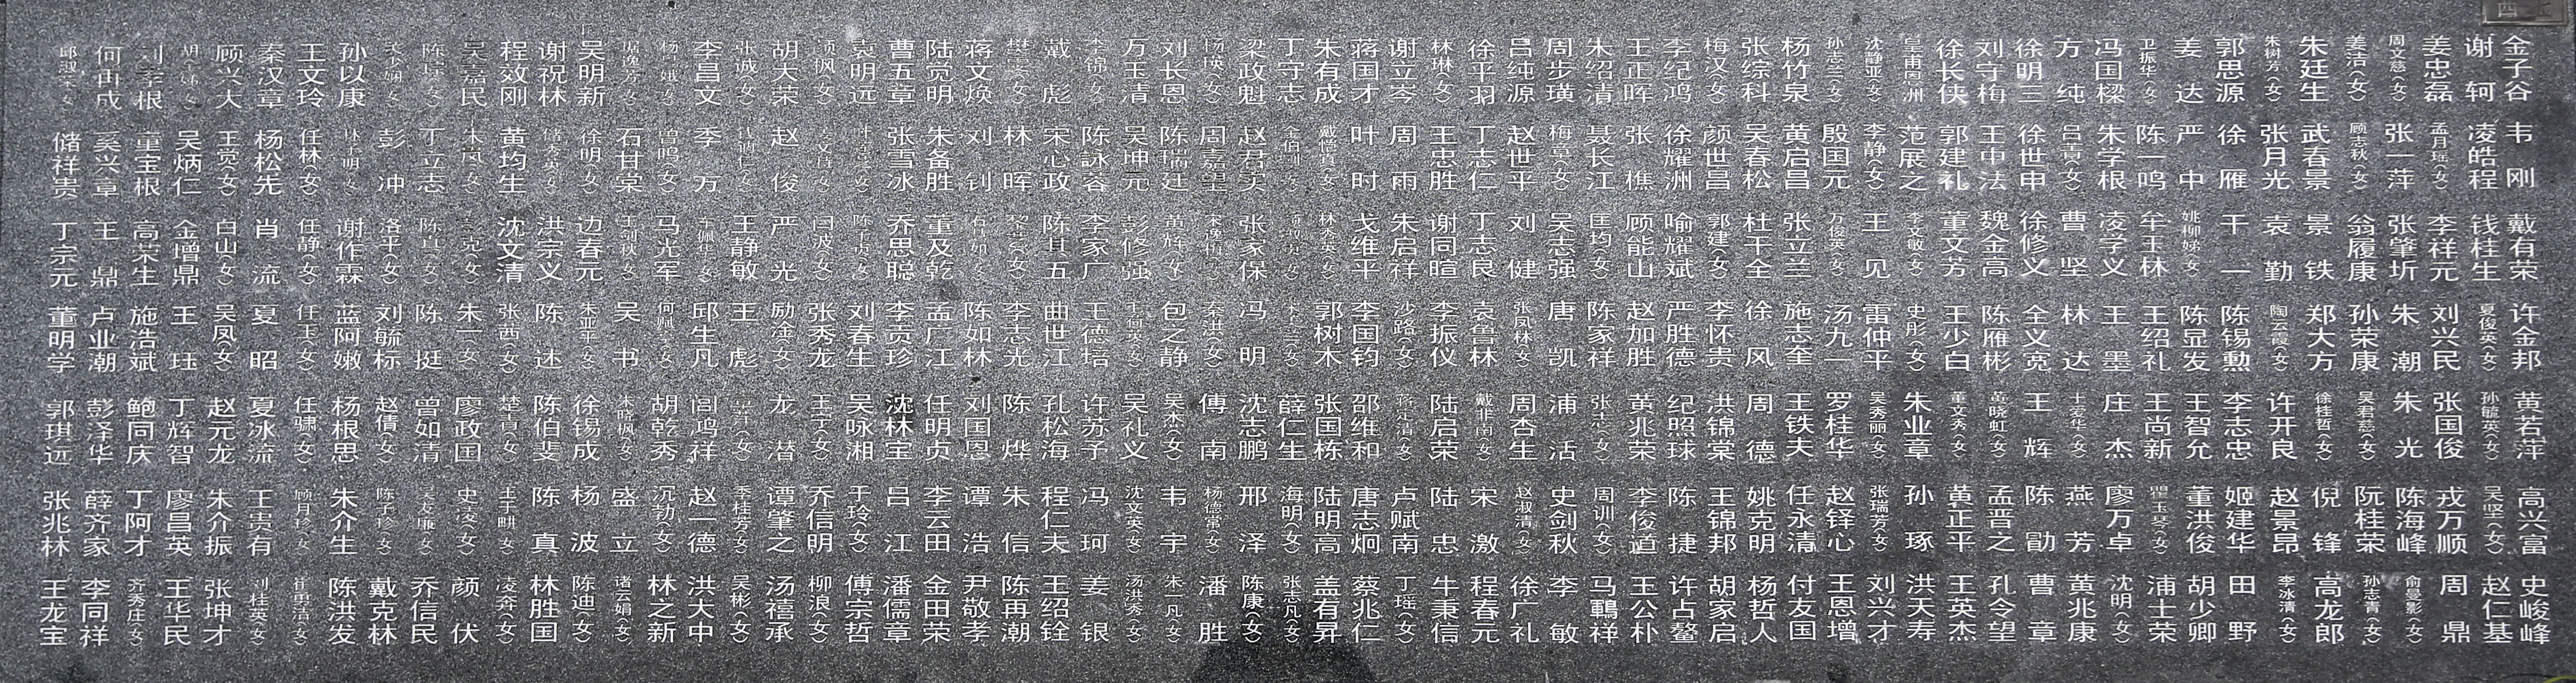 金子谷 谢轲 姜忠磊 周文慈(女) 姜洁(女) 朱廷生 朱树芳(女) 郭思源 姜达 卫振华(女) 冯国樑 方纯 徐明三 刘守梅 徐长侠 沈静亚(女) 孙志兰(女) 杨竹泉 张综科 梅汉(女) 李纪鸿 王正晖 朱绍清 周步璜 吕纯源 徐平羽 林琳(女) 谢立岑 蒋国才 朱有成 丁守志 梁政魁 杨瑛(女) 刘长恩 万玉清 李锦(女) 戴彪 蒋文焕 陆觉明 曹五章 袁明远 项枫(女) 胡大荣 张诚(女) 李昌文 吴明新 谢祝林 程效刚 吴嘉民 陈琼(女) 孙以康 王文玲 秦汉章 顾兴大 刘季根 何再成 邱淑荣(女)
韦刚 凌皓程 孟月瑶(女) 张一萍 顾志秋(女) 武春景 张月光 徐雁 严中 陈一鸣 朱学根 吕贡(女) 徐世申 王中法 郭建礼 范展之 李静(女) 殷国元 黄启昌 吴春松 颜世昌 徐耀洲 张樵 聂长江 梅章(女) 赵世平 丁志仁 王忠胜 周雨 叶时 戴憎真(女) 赵君实 周嘉望 陈瑞廷 吴坤元 陈詠蓉 宋心政 林晖 刘钊 朱备胜 张雪冰 赵俊 李方 曾鸣(女) 石甘棠 徐明(女) 储秀英(女) 黄均生 朱岚(女) 丁立志 彭冲 任林(女) 杨松先 王宽(女) 吴炳仁 童宝根 奚兴章 储祥贵
戴有荣 钱桂生 李祥元 张肇圻 翁履康 景铁 袁勤 干一 姚柳娣(女) 牟玉林 凌学义 曹坚 徐修义 魏金高 董文芳 李文敏(女) 王见 万俊英(女) 张立兰 杜干全 郭建(女) 喻耀斌 顾能山 匡均(女) 吴志强 刘健 丁志良 谢同暄 朱启祥 戈维平 林秀英(女) 张家保 黄辉(女) 彭修强 李家厂 陈其五 董及乾 乔思聪 闫波(女) 严光 王静敏 车佩华(女) 马光军 王剑秋(女) 边春元 洪宗义 沈文清 陈真(女) 洛平(女) 谢作霖 任静(女) 肖流 白山(女) 金增鼎 高荣生 王鼎 丁宗元
许金邦 夏俊英(女) 刘兴民 朱潮 孙荣康 郑大方 陶云霞(女) 陈锡勲 陈显发 王绍礼 王墨 林达 全义宽 陈雁彬 王少白 史彤(女) 雷仲平 汤九一 施志奎 徐风 李怀贵 严胜德 赵加胜 陈家祥 唐凯 张凤林(女) 袁鲁林 李振仪 沙路(女) 李国钧 郭树木 冯明 秦洪(女) 包之静 王德培 曲世江 李志光 陈如林 孟广江 李贡珍 刘春生 张秀龙 励淦(女) 王彪 邱生凡 吴书 朱亚平(女) 陈述 张茜(女) 朱一(女) 陈挺 刘毓标 蓝阿嫩 任玉(女) 夏昭 吴凤(女) 王珏 施浩斌 卢业潮 董明学
黄若萍 孙毓英(女) 张国俊 朱光 吴君慈(女) 徐桂哲(女) 许开良 李志忠 王智允 王尚新 庄杰 王爱华(女) 王辉 黄晓虹(女) 董文秀(女) 朱业章 吴秀丽(女) 罗桂华 王铁夫 周德 洪锦棠 纪照球 黄兆荣 张志(女) 浦活 周杏生 戴非雨(女) 陆启荣 蒋定清(女) 邵维和 张国栋 薛仁生 沈志鹏 傅南 吴杰(女) 吴礼义 许苏子 孔松海 陈烨 刘国恩 任明贞 沈林宝 吴咏湘 王于(女) 龙潜 闾鸿祥 胡乾秀 朱晓枫(女) 徐锡成 陈伯斐 楚青(女) 廖政国 曾如清 赵倩(女) 杨根思 任骕(女) 夏冰流 赵元龙 丁辉智 鲍同庆 彭泽华 郭琪远
高兴富 吴坚(女) 戎万顺 陈海峰 阮桂荣 倪锋 赵景昂 姬建华 董洪俊 瞿玉琴(女) 廖万卓 燕芳 陈勖 孟晋之 黄正平 孙琢 张瑞芳(女) 赵铎心 任永清 姚克明 王锦邦 陈捷 李俊道 周训(女) 史剑秋 赵淑清(女) 宋激 陆忠 卢赋南 唐志炯 陆明高 海明(女) 邢泽 杨德常(女) 韦宇 沈文英(女) 冯珂 程仁夫 朱信 谭浩 李云田 吕江 于玲(女) 乔信明 谭肇之 季桂芳(女) 赵一德 沉勃(女) 盛立 杨波 陈真 王于畊(女) 史凌(女) 吴友廉(女) 陈子珍(女) 朱介生 顾月珍(女) 王贵有 朱介振 廖昌英 丁阿才 薛齐家 张兆林
史峻峰 赵仁基 周鼎 俞曼影(女) 孙志青(女) 高龙郎 李冰清(女) 田野 胡少卿 浦士荣 沈明(女) 黄兆康 曹章 孔令望 王英杰 洪天寿 刘兴才 王恩增 付友国 杨哲人 胡家启 许占鳌 王公朴 马鶤祥 李敏 徐广礼 程春元 牛秉信 丁瑶(女) 蔡兆仁 盖有昇 张志凡(女) 陈康(女) 潘胜 朱一凡(女) 汤洪秀(女) 姜银 王绍铨 陈再潮 尹敬孝 金田荣 潘儒章 傅宗哲 柳浪(女) 汤禧承 吴彬(女) 洪大中 林之新 诸云娟(女) 陈迪(女) 林胜国 凌奔(女) 颜伏 乔信民 戴克林 陈洪发 崔思洁(女) 刘桂英(女) 张坤才 王华民 齐秀庄(女) 李同祥 王龙宝